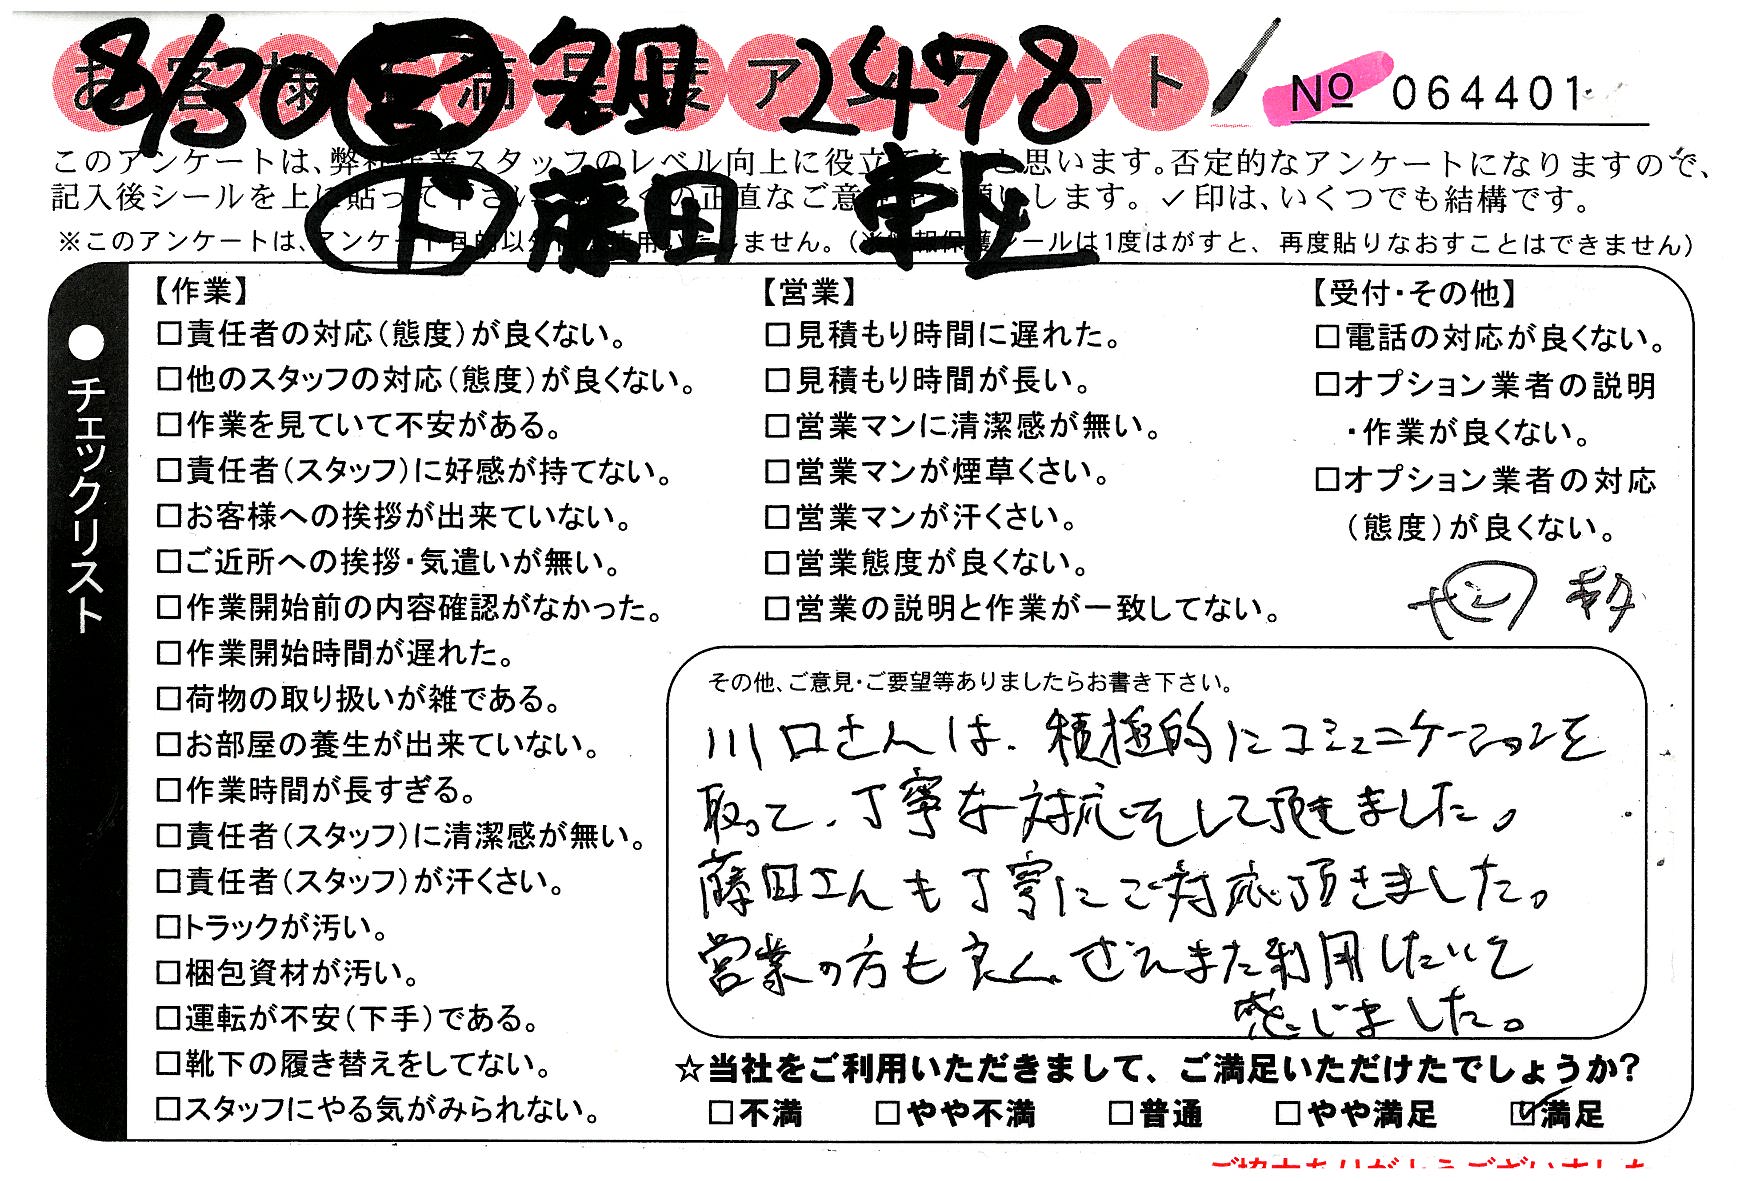 8/30 宮 2478
お客様満足度アンケート
№ 064401
このアンケートは、弊社作業スタッフのレベル向上に役立てたいと思います。否定的なアンケートになりますので、
記入後シールを上に貼って下さい。 の正直なご意見をお願いします。✓印は、いくつでも結構です。
下 藤田
※このアンケートは、アンケート目的以外には使用いたしません。（※情報保護シールは1度はがすと、再度貼りなおすことはできません）
●チェックリスト
【作業】
□責任者の対応（態度）が良くない。
□他のスタッフの対応（態度）が良くない。
□作業を見ていて不安がある。
□責任者（スタッフ）に好感が持てない。
□お客様への挨拶が出来ていない。
□ご近所への挨拶・気遣いが無い。
□作業開始前の内容確認がなかった。
□作業開始時間が遅れた。
□荷物の取り扱いが雑である。
□お部屋の養生が出来ていない。
□作業時間が長すぎる。
□責任者（スタッフ）に清潔感が無い。
□責任者（スタッフ）が汗くさい。
□トラックが汚い。
□梱包資材が汚い。
□運転が不安（下手）である。
□靴下の履き替えをしてない。
□スタッフにやる気がみられない。
【営業】
□見積もり時間に遅れた。
□見積もり時間が長い。
□営業マンに清潔感が無い。
□営業マンが煙草くさい。
□営業マンが汗くさい。
□営業態度が良くない。
□営業の説明と作業が一致してない。
【受付・その他】
□電話の対応が良くない。
□オプション業者の説明
・作業が良くない。
□オプション業者の対応
（態度）が良くない。
その他、ご意見・ご要望等ありましたらお書き下さい。
川口さんは、積極的にコミュニケーションを
取って、丁寧な対応をして頂きました。
藤田さんも丁寧にご対応頂きました。
営業の方も良く、ぜひまた利用したいと
感じました。
☆当社をご利用いただきまして、ご満足いただけたでしょうか?
□不満 □やや不満 □普通 □やや満足 ☑満足
ご協力ありがとうございました